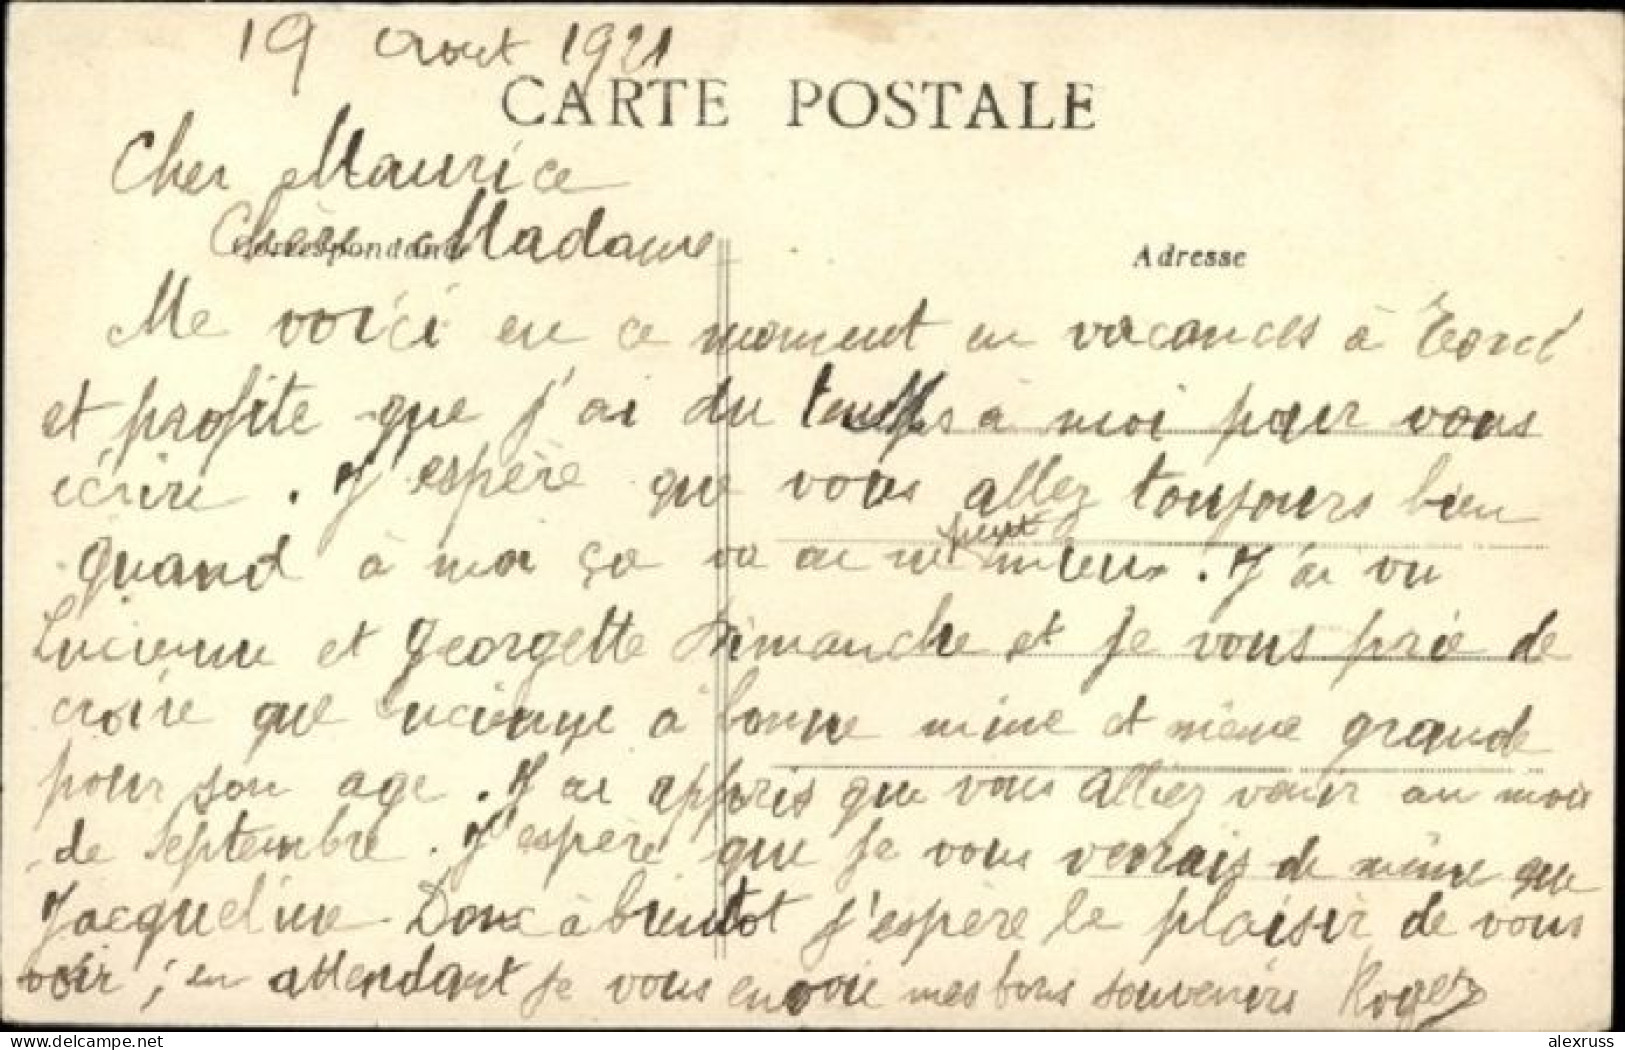 19 Aout 1921
CARTE POSTALE
Cher Maurice
Chère Madame
Correspondance
Adresse
Me voici en ce moment en vacances à Torcé
et profite que j'ai du temps à moi pour vous
écrire. J'espère que vous allez toujours bien
quand à moi ça va on ne peut mieux. J'ai vu
Lucienne et Georgette Dimanche et je vous prie de
croire que Lucienne à bonne mine et même grande
pour son age. J'ai appris que vous alliez venir au mois
de Septembre. J'espère que je vous verrais de même que
Jacqueline. Donc à bientôt j'espère le plaisir de vous
voir; en attendant je vous envoie mes bons souvenirs Roger
alexruss